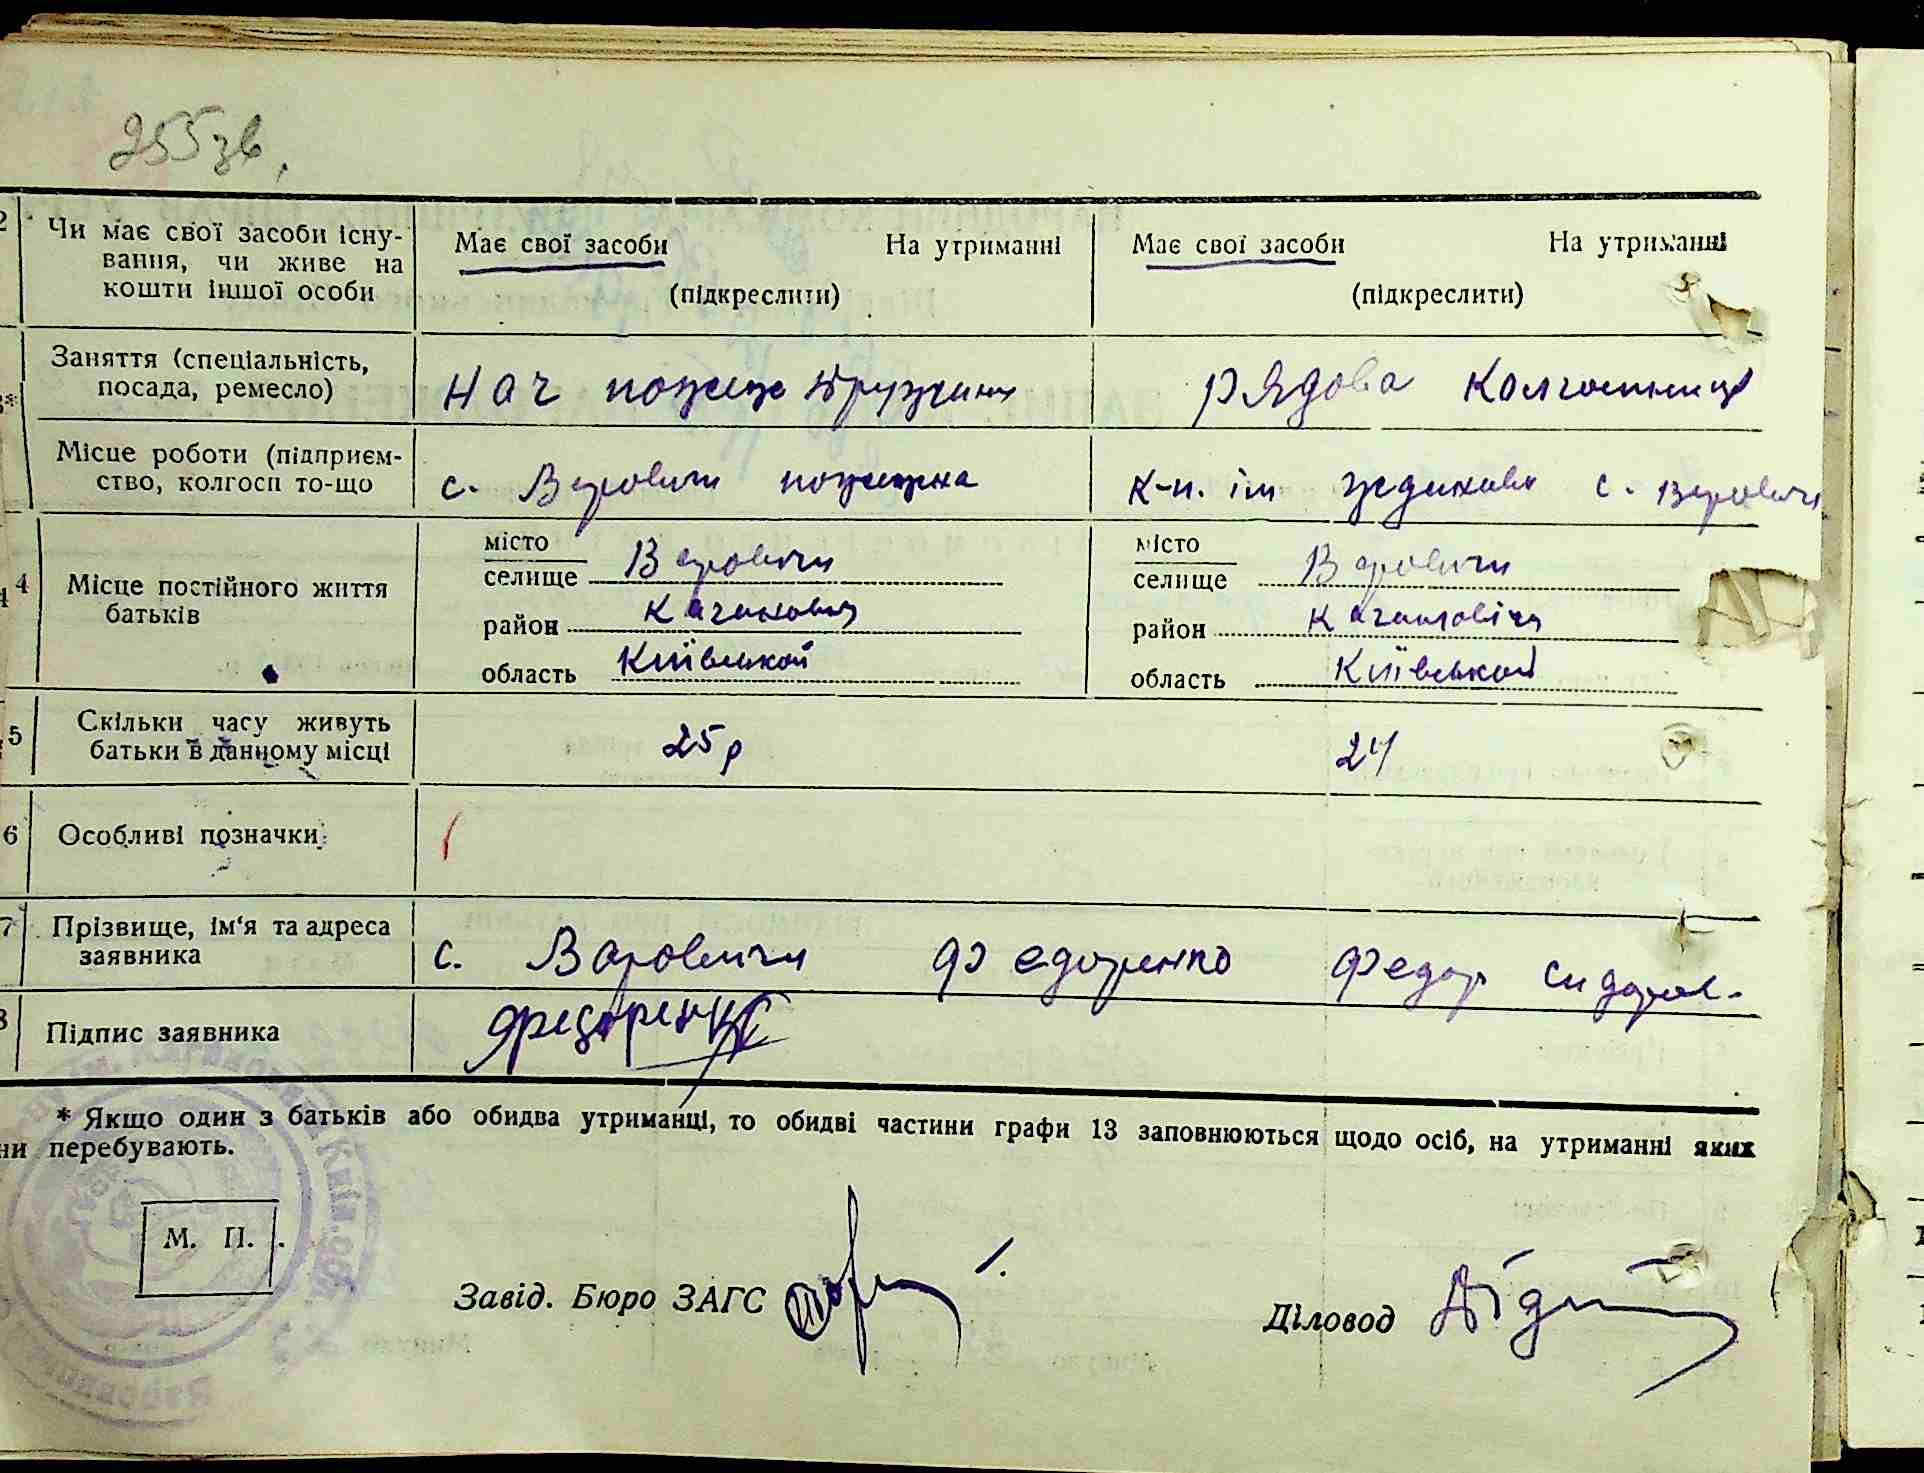 255 зв.
2 Чи має свої засоби існу- Має свої засоби На утриманні Має свої засоби На утриманні
вання, чи живе на
кошти іншої особи (підкреслити) (підкреслити)
Заняття (спеціальність,
посада, ремесло) Нач пожеж дружини рядова колгоспниця
3*
Місце роботи (підприєм-
ство, колгосп то-що с. Варовичи пожежна к-п. ім с. Варовичи
місто місто
селище Варовичи селище Варовичи
4 Місце постійного життя
батьків район Кагановича район Кагановіча
область Київської область Київської
5 Скільки часу живуть
батьки в данному місці 25 р 24
6 Особливі позначки
7 Прізвище, ім'я та адреса
заявника с. Варовичи Федоренко Федор Сидоров.
8 Підпис заявника Федоренко
* Якщо один з батьків або обидва утриманці, то обидві частини графи 13 заповнюються щодо осіб, на утриманні яких
ни перебувають.
М. П.
Завід. Бюро ЗАГС
Діловод